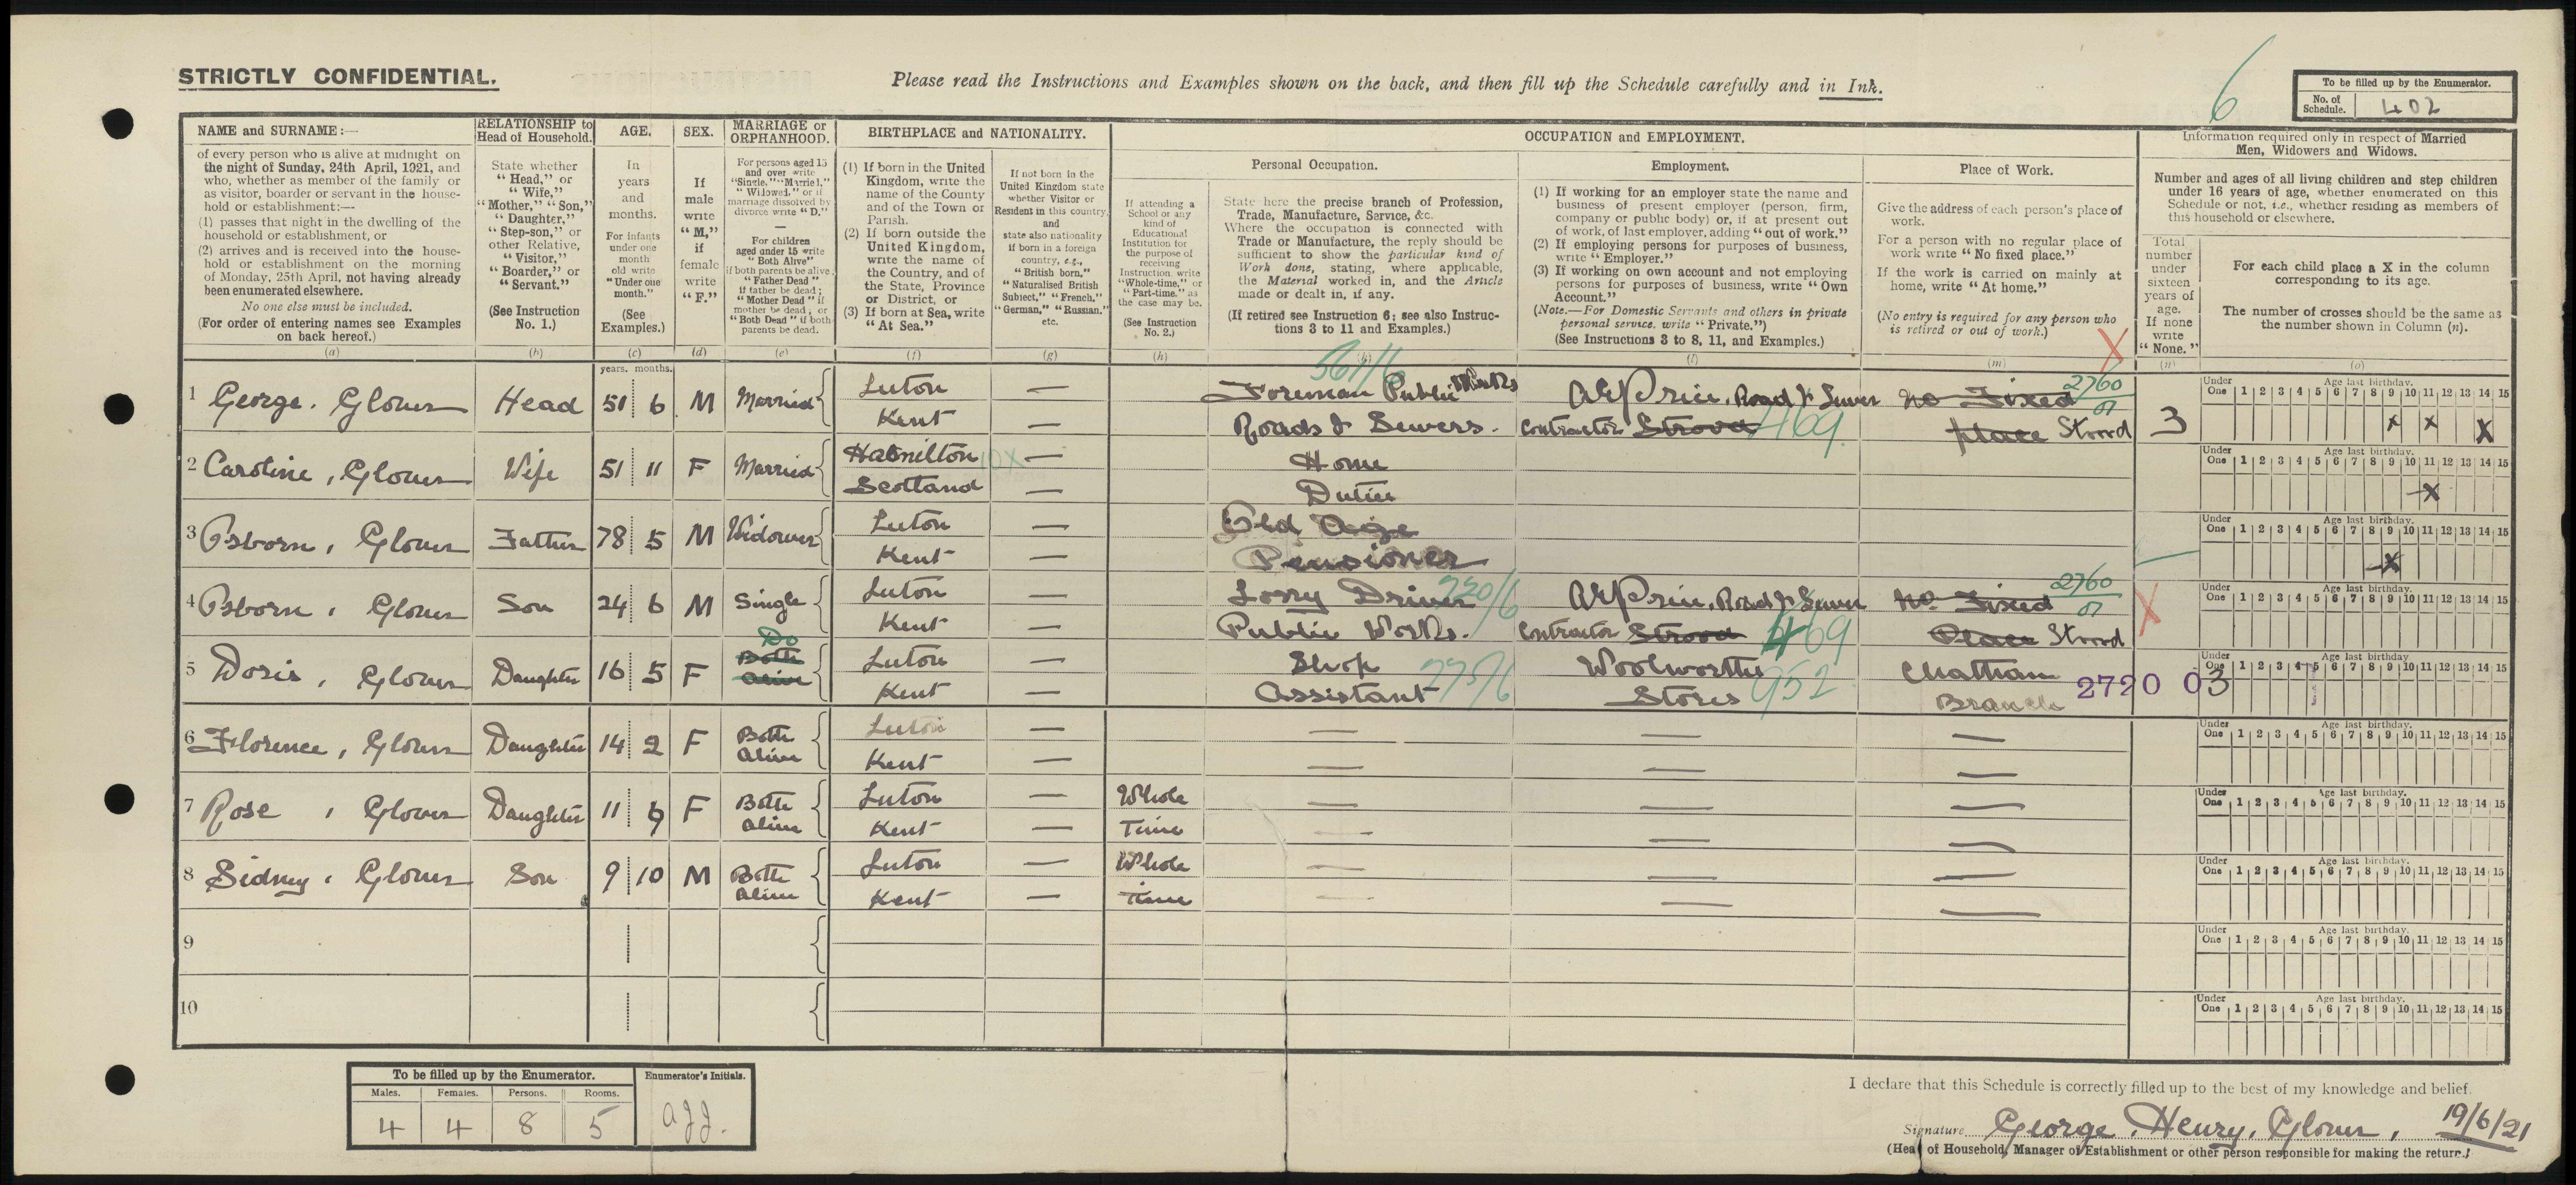 STRICTLY CONFIDENTIAL.
Please read the Instructions and Examples shown on the back, and then fill up the Schedule carefully and in Ink.
6
To be filled up by the Enumerator.
No. of Schedule. 402
NAME and SURNAME:—
of every person who is alive at midnight on
the night of Sunday, 24th April, 1921, and
who, whether as member of the family or
as visitor, boarder or servant in the house-
hold or establishment:—
(1) passes that night in the dwelling of the
household or establishment, or
(2) arrives and is received into the house-
hold or establishment on the morning
of Monday, 25th April, not having already
been enumerated elsewhere.
No one else must be included.
(For order of entering names see Examples
on back hereof.)
(a)
RELATIONSHIP to
Head of Household.
State whether
"Head," or
"Wife,"
"Mother," "Son,"
"Daughter,"
"Step-son," or
other Relative,
"Visitor,"
"Boarder," or
"Servant."
(See Instruction
No. 1.)
(b)
AGE.
In
years
and
months.
For infants
under one
month
old write
"Under one
month."
(See
Examples.)
(c)
SEX.
If
male
write
"M,"
if
female
write
"F."
(d)
MARRIAGE or
ORPHANHOOD.
For persons aged 15
and over write
"Single," "Married,"
"Widowed," or if
marriage dissolved by
divorce write "D."
—
For children
aged under 15 write
"Both Alive"
if both parents be alive;
"Father Dead"
if father be dead;
"Mother Dead" if
mother be dead; or
"Both Dead" if both
parents be dead.
(e)
BIRTHPLACE and NATIONALITY.
(1) If born in the United
Kingdom, write the
name of the County
and of the Town or
Parish.
(2) If born outside the
United Kingdom,
write the name of
the Country, and of
the State, Province
or District, or
(3) If born at Sea, write
"At Sea."
(f)
If not born in the
United Kingdom state
whether Visitor or
Resident in this country,
and
state also nationality
if born in a foreign
country, e.g.,
"British born,"
"Naturalised British
Subject," "French,"
"German," "Russian,"
etc.
(g)
OCCUPATION and EMPLOYMENT.
If attending a
School or any
kind of
Educational
Institution for
the purpose of
receiving
Instruction, write
"Whole-time," or
"Part-time," as
the case may be.
(See Instruction
No. 2.)
(h)
Personal Occupation.
State here the precise branch of Profession,
Trade, Manufacture, Service, &c.
Where the occupation is connected with
Trade or Manufacture, the reply should be
sufficient to show the particular kind of
Work done, stating, where applicable,
the Material worked in, and the Article
made or dealt in, if any.
(If retired see Instruction 6; see also Instruc-
tions 3 to 11 and Examples.)
(k)
Employment.
(1) If working for an employer state the name and
business of present employer (person, firm,
company or public body) or, if at present out
of work, of last employer, adding "out of work."
(2) If employing persons for purposes of business,
write "Employer."
(3) If working on own account and not employing
persons for purposes of business, write "Own
Account."
(Note.—For Domestic Servants and others in private
personal service, write "Private.")
(See Instructions 3 to 8, 11, and Examples.)
(l)
Place of Work.
Give the address of each person's place of
work.
For a person with no regular place of
work write "No fixed place."
If the work is carried on mainly at
home, write "At home."
(No entry is required for any person who
is retired or out of work.)
(m)
Information required only in respect of Married
Men, Widowers and Widows.
Number and ages of all living children and step children
under 16 years of age, whether enumerated on this
Schedule or not, i.e., whether residing as members of
this household or elsewhere.
Total
number
under
sixteen
years of
age.
If none
write
"None."
(n)
For each child place a X in the column
corresponding to its age.
The number of crosses should be the same as
the number shown in Column (n).
(o)
years. months.
Under One 1 2 3 4 5 6 7 8 9 10 11 12 13 14 15
Age last birthday.
1 George. Glover Head 51 6 M Married Luton — Foreman Public Works A E Price, Road & Sewer No Fixed 2760/01 3 X X X
Kent — Roads & Sewers. Contractor Strood 469 place Strood
561/6
2 Caroline, Glover Wife 51 11 F Married Hamilton — Home
Scotland — Duties
10X
3 Osborn, Glover Father 78 5 M Widower Luton — Old Age
Kent — Pensioner
4 Osborn, Glover Son 24 6 M Single Luton Lorry Driver 720/6 A E Price, Road & Sewer No Fixed 2760/01
Kent Public Works. Contractor Strood 469 Place Strood
5 Doris, Glover Daughter 16 5 F Do Both Alive Luton Shop Woolworths Chatham
Kent Assistant 775/6 Stores 952 Branch 2720 03
6 Florence, Glover Daughter 14 2 F Both Luton —
Alive Kent —
7 Rose, Glover Daughter 11 9 F Both Luton — Whole
Alive Kent — Time
8 Sidney, Glover Son 9 10 M Both Luton — Whole
Alive Kent — Time
9
10
To be filled up by the Enumerator.
Males. Females. Persons. Rooms.
4 4 8 5
Enumerator's Initials.
I declare that this Schedule is correctly filled up to the best of my knowledge and belief.
Signature George, Henry, Glover, 19/6/21
(Head of Household, Manager of Establishment or other person responsible for making the return.)